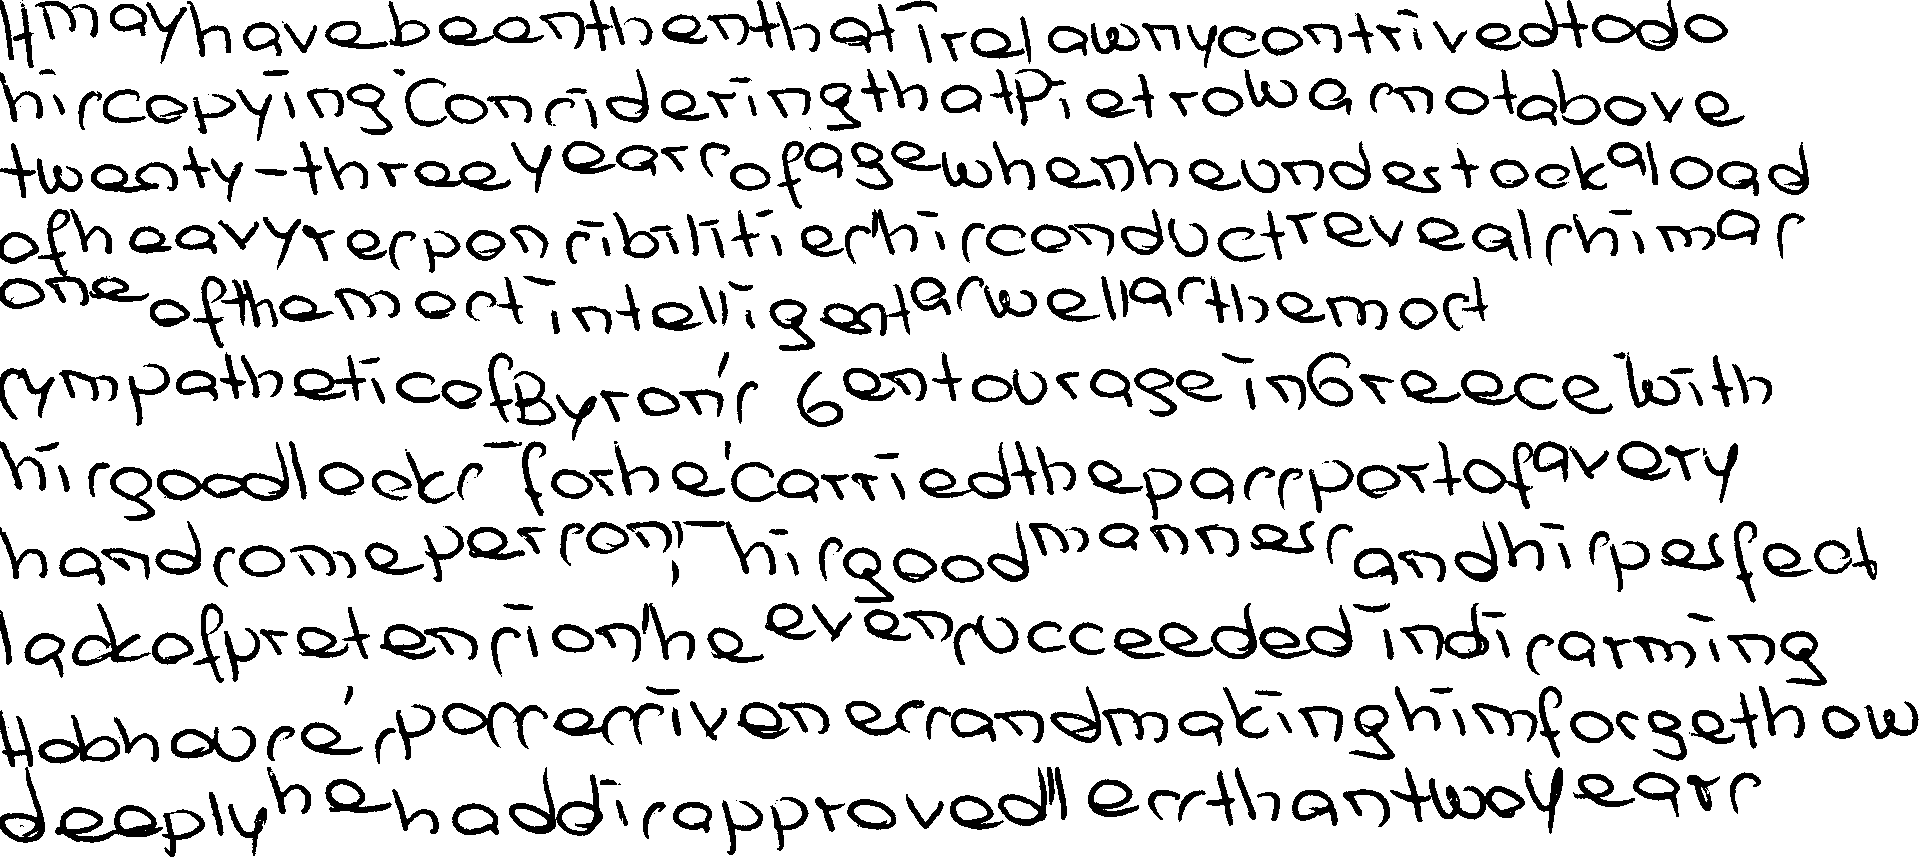 It may have been then that Trelawny contrived to do
his copying. Considering that Pietro was not above
twenty-three years of age when he undertook a load
of heavy responsibilities, his conduct reveals him as
one of the most intelligent as well as the most
sympathetic of Byron's 6 entourage in Greece. With
his good looks - for he 'carried the passport of a very
handsome person', - his good manners and his perfect
lack of pretension, he even succeeded in disarming
Hobhouse's possessiveness and making him forget how
deeply he had disapproved, less than two years